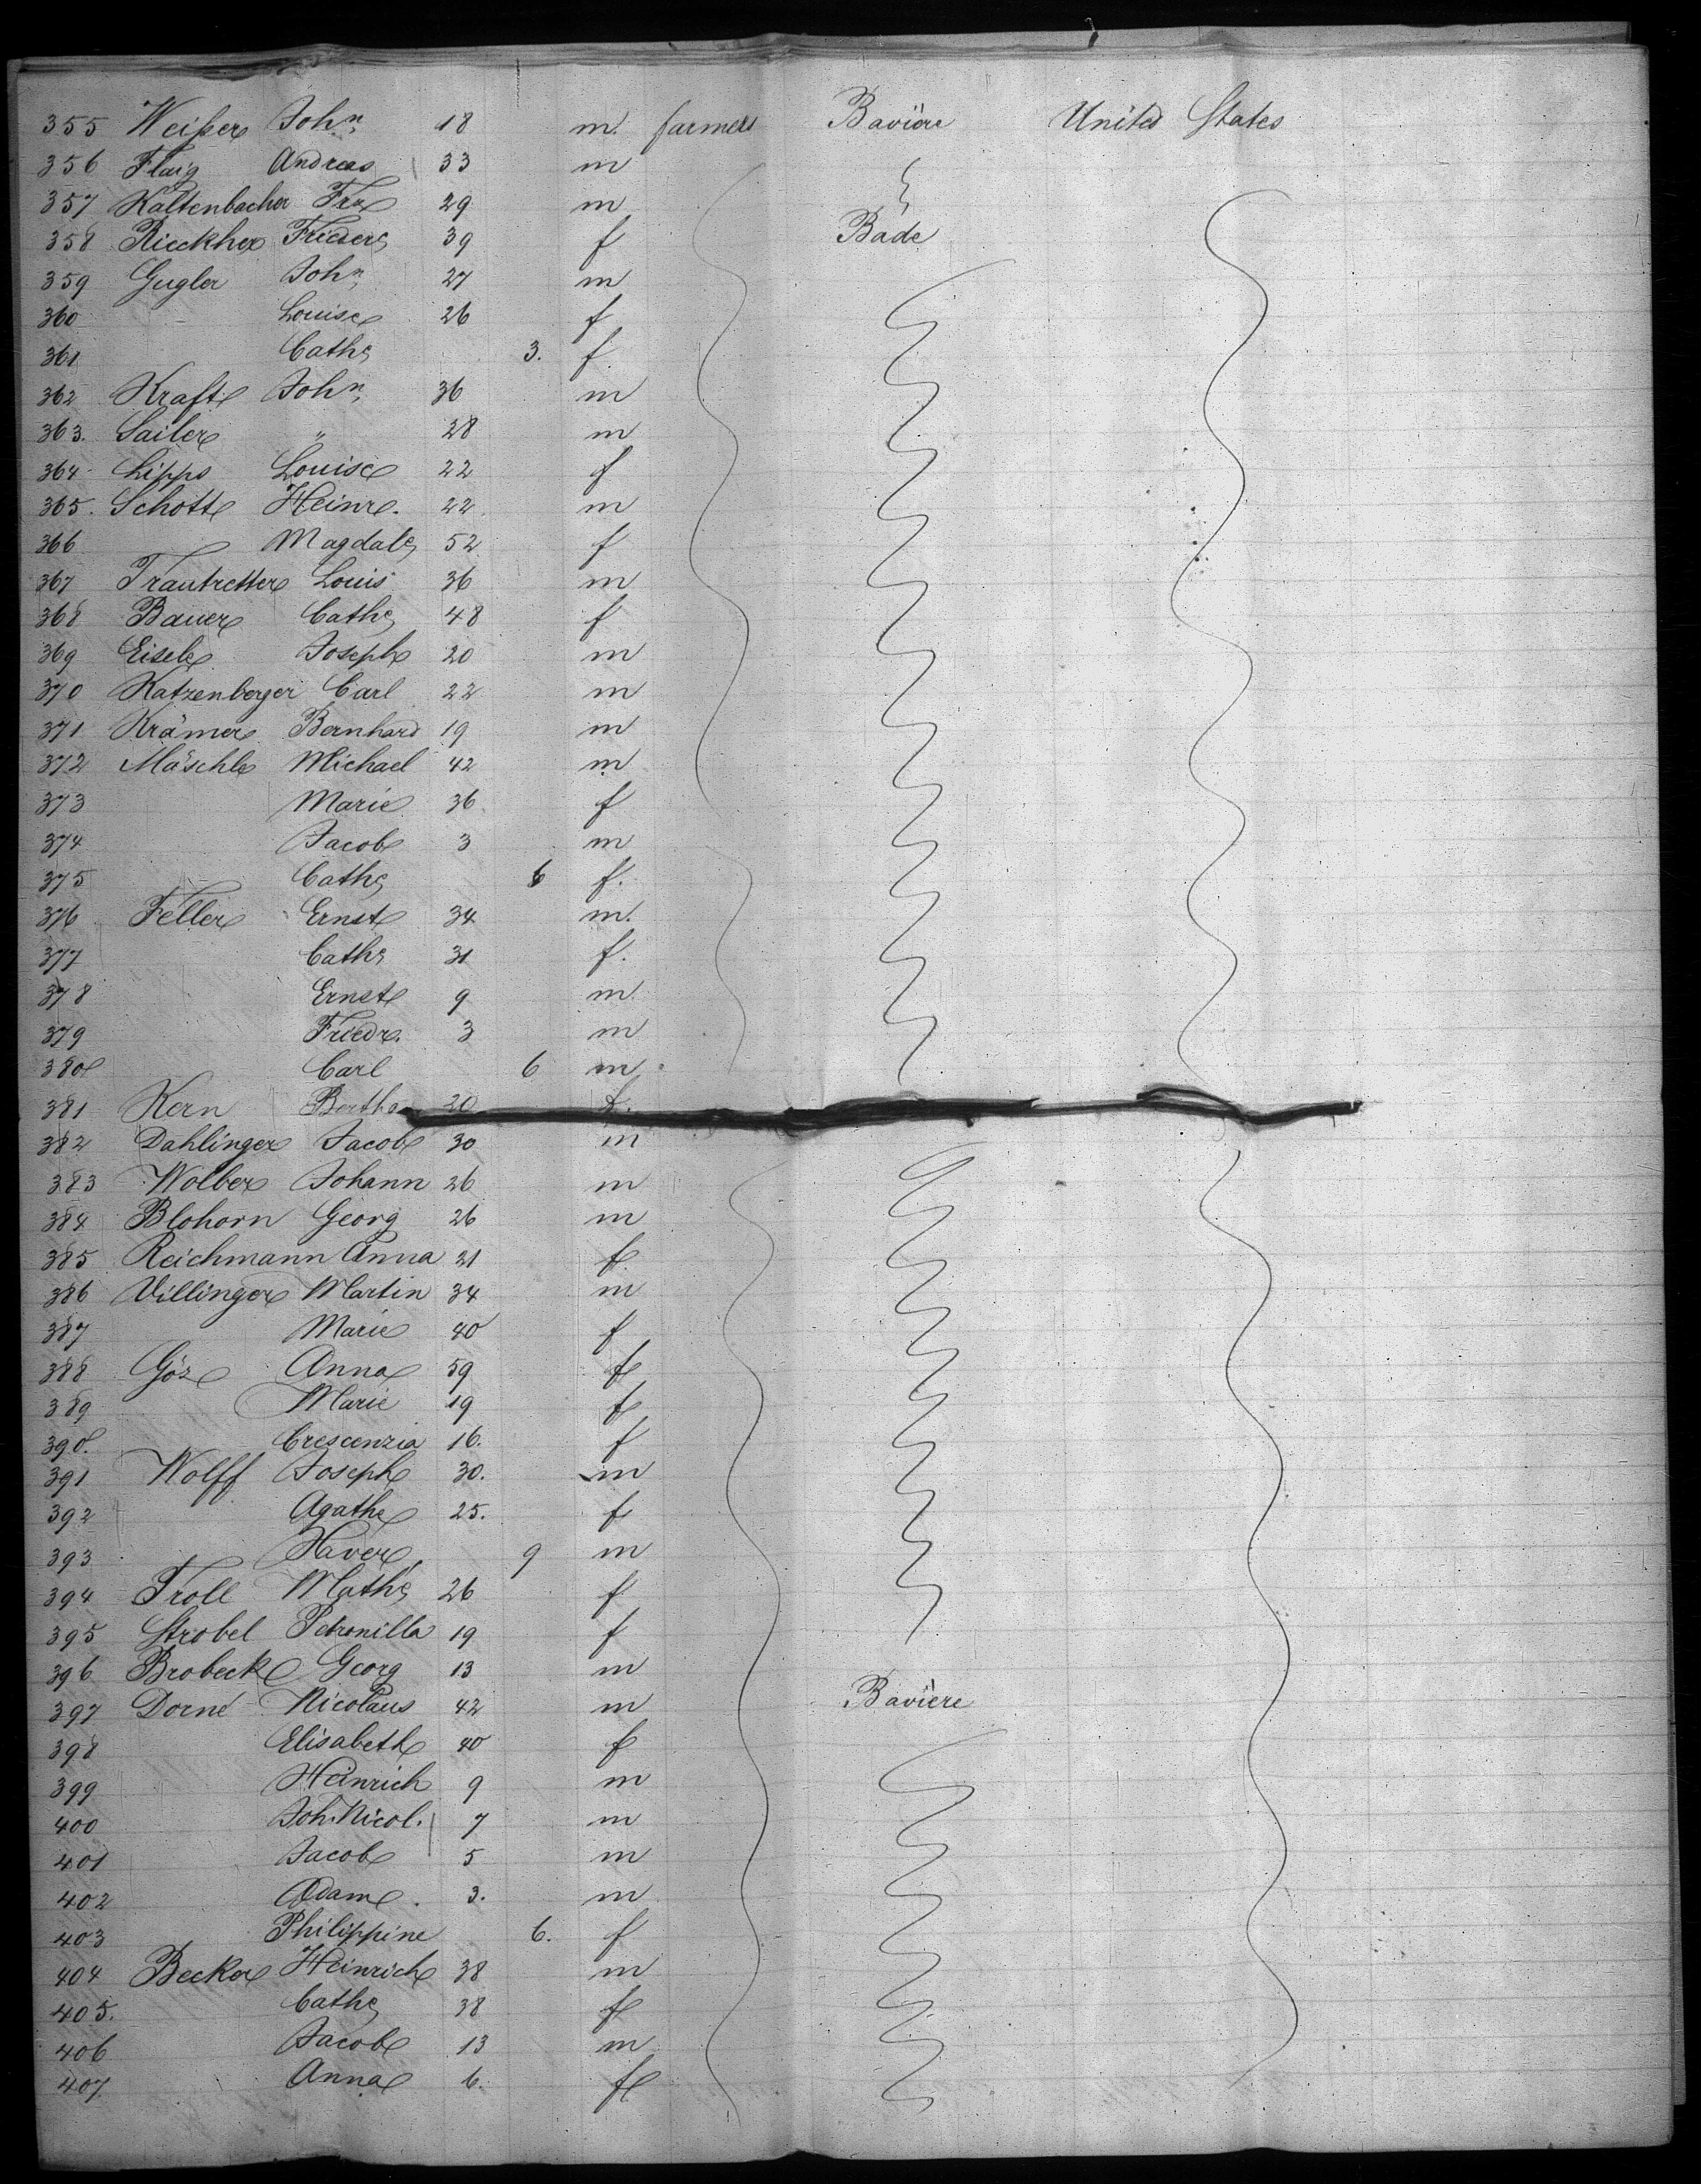 355 Weißer Joh.n 18 m. farmers Bavière United States
356 Flaig Andreas 33 m
357 Kaltenbacher Frz 29 m
358 Rieckher Friedere 39 f Bade
359 Gugler Joh.n 27 m
360 Louise 26 f
361 Cathe 3. f
362 Kraft Joh.n 36 m
363. Sailer " 28 m
364 Lipps Louise 22 f
365. Schott Heinr. 22 m
366 Magdale 52 f
367 Trautretter Louis 36 m
368 Bauer Cathe 48 f
369 Eisele Joseph 20 m
370 Katzenberger Carl 22 m
371 Krämer Bernhard 19 m
372 Möschle Michael 42 m
373 Marie 36 f
374 Jacob 3 m
375 Cathe 6 f.
376 Feller Ernst 34 m.
377 Cathe 31 f.
378 Ernst 9 m
379 Friedr. 3 m
380 Carl 6 m
381 Kern Bertha 20 f.
382 Dahlinger Jacob 30 m
383 Wolber Johann 26 m
384 Blohorn Georg 26 m
385 Reichmann Anna 21 f
386 Villinger Martin 34 m
387 Marie 40 f
388 Göz Anna 59 f
389 Marie 19 f
390. Crescenzia 16. f
391 Wolff Joseph 30. m
392 Agathe 25. f
393 Xaver 9 m
394 Troll Mathe 26 f
395 Strobel Petronilla 19 f
396 Brobeck Georg 13 m
397 Dorné Nicolaus 42 m Bavière
398 Elisabeth 40 f
399 Heinrich 9 m
400 Joh. Nicol. 7 m
401 Jacob 5 m
402 Adam 3. m
403 Philippine 6. f
404 Becker Heinrich 38 m
405. Cathe 38 f
406 Jacob 13 m
407. Anna 6. f